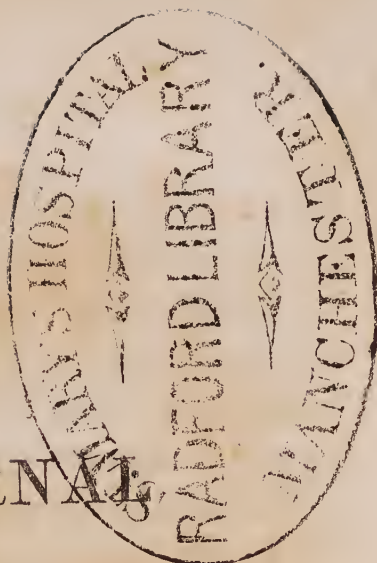 ST MARY'S HOSPITAL,
RADFORD LIBRARY
MANCHESTER.
ENAL